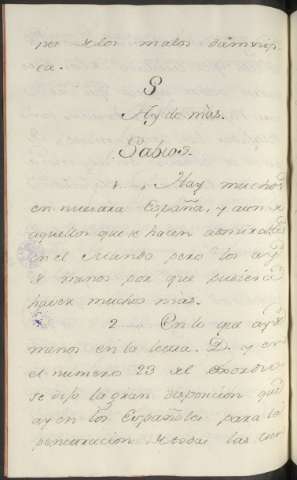 por &los malos
ca.
S
Ay de mas.
Sabios.
1... Hay muchos
en nuestra España, y aun
aquellos que se hacen admirables
en el Mundo pero los ay
de menos por que pudiera
haver muchos mas.
2.... En lo que ay de
menos en la letra D. y en
el numero 23 del
se dijo la gran disposicion que
ay en los Españoles para la
penetracion de todas las